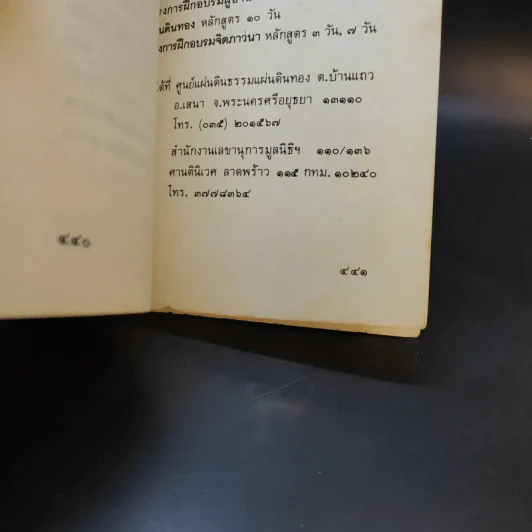 ๔๔๐
งการฝึกอบรมผู้
นดินทอง หลักสูตร ๑๐ วัน
งการฝึกอบรมจิตภาวนา หลักสูตร ๓ วัน, ๗ วัน
ได้ที่ ศูนย์แผ่นดินธรรมแผ่นดินทอง ต.บ้านแถว
อ.เสนา จ.พระนครศรีอยุธยา ๑๓๑๑๐
โทร. (๐๓๕) ๒๐๑๕๖๗
สำนักงานเลขานุการมูลนิธิฯ ๑๑๐/๑๓๖
ศานตินิเวศ ลาดพร้าว ๑๑๕ กทม. ๑๐๒๔๐
โทร. ๓๗๗๘๓๖๔
๔๔๑